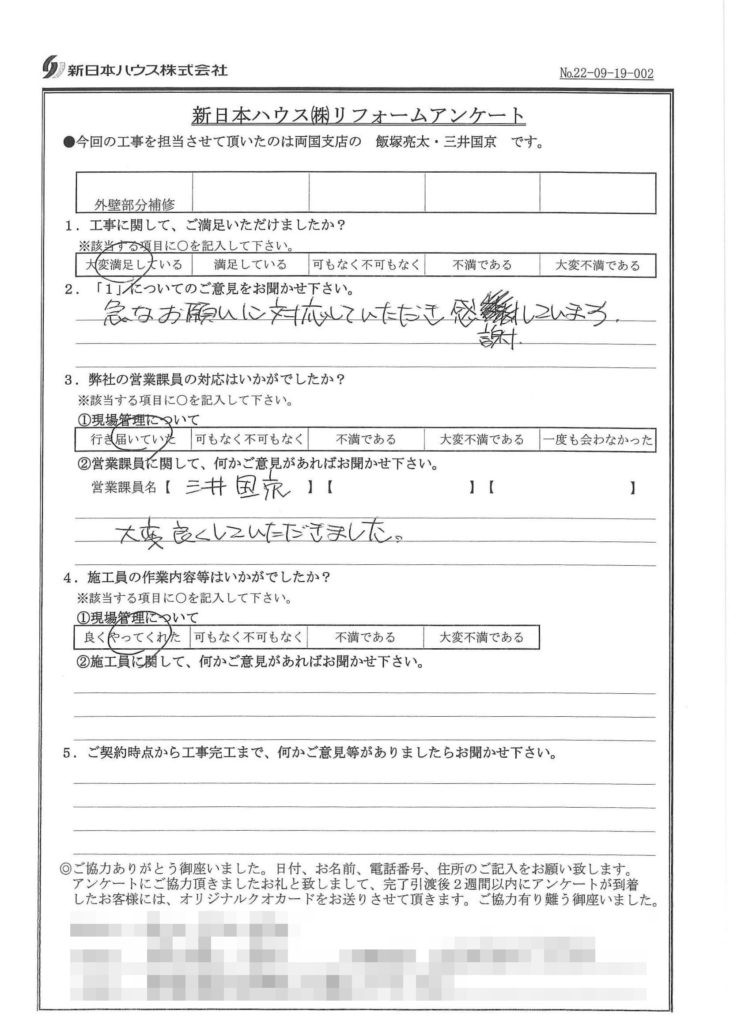 新日本ハウス株式会社
№22-09-19-002
新日本ハウス㈱リフォームアンケート
●今回の工事を担当させて頂いたのは両国支店の 飯塚亮太・三井国京 です。
外壁部分補修
1．工事に関して、ご満足いただけましたか？
※該当する項目に○を記入して下さい。
大変満足している 満足している 可もなく不可もなく 不満である 大変不満である
2．「1」についてのご意見をお聞かせ下さい。
急なお願いに対応していただき感謝しています。
3．弊社の営業課員の対応はいかがでしたか？
※該当する項目に○を記入して下さい。
①現場管理について
行き届いていた 可もなく不可もなく 不満である 大変不満である 一度も会わなかった
②営業課員に関して、何かご意見があればお聞かせ下さい。
営業課員名【 三井国京 】【 】【 】
大変良くしていただきました。
4．施工員の作業内容等はいかがでしたか？
※該当する項目に○を記入して下さい。
①現場管理について
良くやってくれた 可もなく不可もなく 不満である 大変不満である
②施工員に関して、何かご意見があればお聞かせ下さい。
5．ご契約時点から工事完工まで、何かご意見等がありましたらお聞かせ下さい。
◎ご協力ありがとう御座いました。日付、お名前、電話番号、住所のご記入をお願い致します。
アンケートにご協力頂きましたお礼と致しまして、完了引渡後２週間以内にアンケートが到着
したお客様には、オリジナルクオカードをお送りさせて頂きます。ご協力有り難う御座いました。